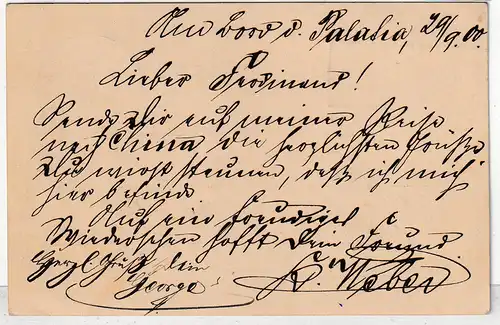 An Bord d. Palatia, 29/9.00.
Lieber Ferdinand!
Sende Dir auf meiner Reise
nach China, die herzlichsten Grüße
Du wirst staunen, daß ich mich
hier befinde.
Auf ein freudiges
Wiedersehen hofft Dein Freund
Herzl. Grüße Dein
George
Weber